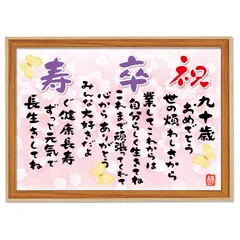 祝
九十歳
おめでとう
世の煩わしさから
卒
業してこれからは
自分らしく生きてね
これまで頑張ってくれて
心からありがとう
みんな大好きだよ
寿
ぐ健康長寿
ずっと元気で
長生きしてね